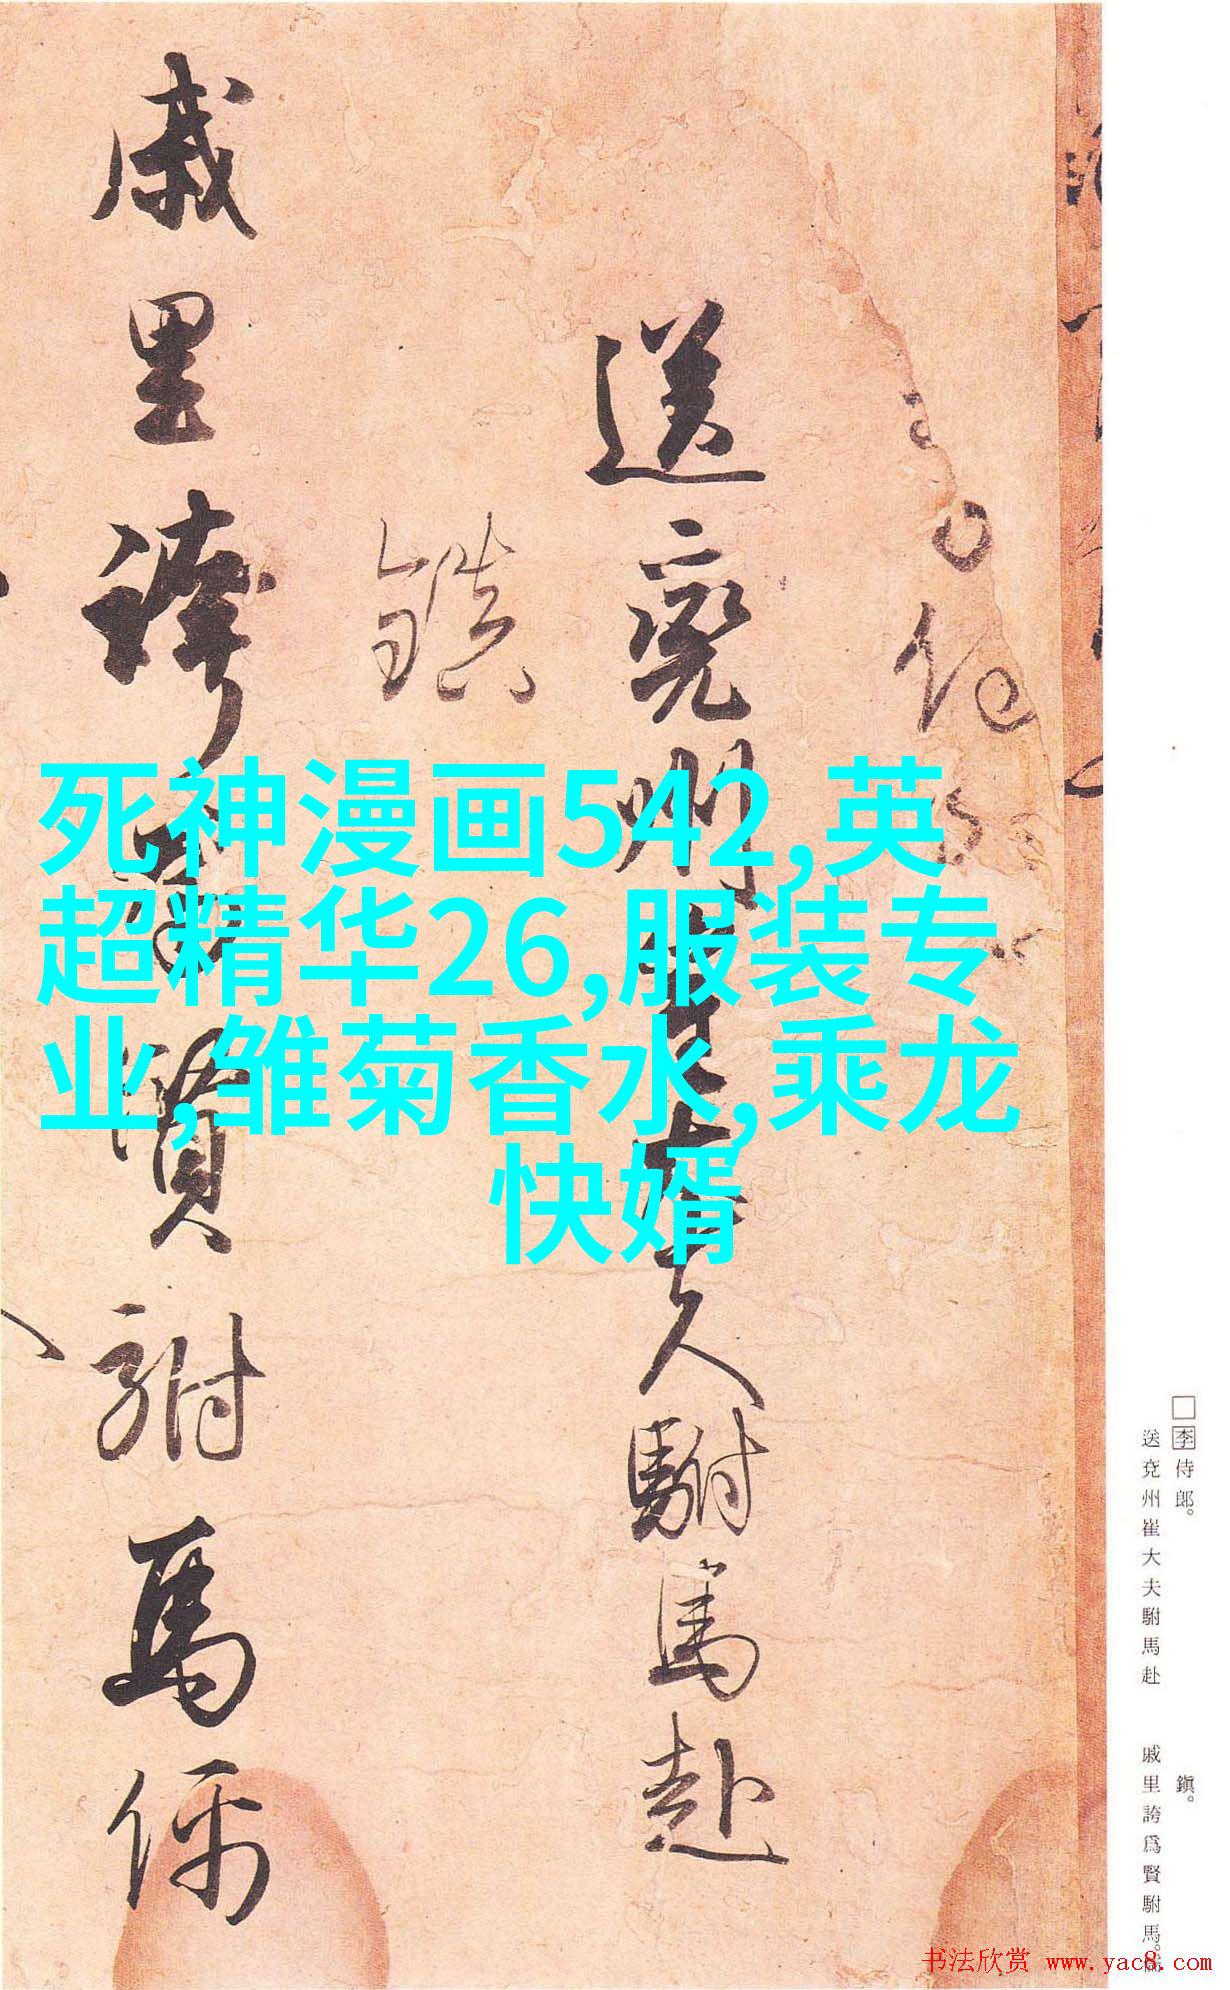 死神漫画542,英
超精华26,服装专
业,雏菊香水,乘龙
快婿
送兖州崔大夫駙馬赴
鎮
戚里誇為賢駙馬儒
□李侍郎。
送兗州崔大夫駙馬赴
鎭。
戚里誇爲賢駙馬。儒
书法欣赏 www.yac8.com